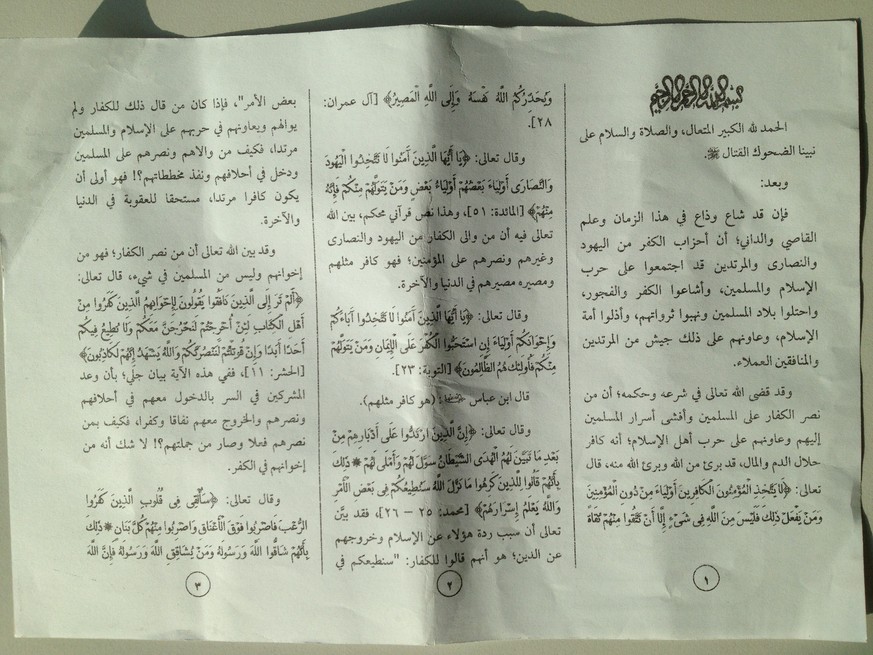 بسم الله الرحمن الرحيم
الحمد لله الكبير المتعال، والصلاة والسلام على
نبينا الضحوك القتال ﷺ.
وبعد:
فإن قد شاع وذاع في هذا الزمان وعلم
القاصي والداني؛ أن أحزاب الكفر من اليهود
والنصارى والمرتدين قد اجتمعوا على حرب
الإسلام والمسلمين، وأشاعوا الكفر والفجور،
واحتلوا بلاد المسلمين ونهبوا ثرواتهم، وأذلوا أمة
الإسلام، وعاونهم على ذلك جيش من المرتدين
والمنافقين العملاء.
وقد قضى الله تعالى في شرعه وحكمه؛ أن من
نصر الكفار على المسلمين وأفشى أسرار المسلمين
إليهم وعاونهم على حرب أهل الإسلام؛ أنه كافر
حلال الدم والمال، قد برئ من الله وبرئ الله منه، قال
تعالى: ﴿لَا يَتَّخِذِ الْمُؤْمِنُونَ الْكَافِرِينَ أَوْلِيَاءَ مِنْ دُونِ الْمُؤْمِنِينَ
وَمَنْ يَفْعَلْ ذَلِكَ فَلَيْسَ مِنَ اللَّهِ فِي شَيْءٍ إِلَّا أَنْ تَتَّقُوا مِنْهُمْ تُقَاةً
١
وَيُحَذِّرُكُمُ اللَّهُ نَفْسَهُ وَإِلَى اللَّهِ الْمَصِيرُ﴾ [آل عمران:
٢٨].
وقال تعالى: ﴿يَا أَيُّهَا الَّذِينَ آمَنُوا لَا تَتَّخِذُوا الْيَهُودَ
وَالنَّصَارَى أَوْلِيَاءَ بَعْضُهُمْ أَوْلِيَاءُ بَعْضٍ وَمَنْ يَتَوَلَّهُمْ مِنْكُمْ فَإِنَّهُ
مِنْهُمْ﴾ [المائدة: ٥١]، وهذا نص قرآني محكم، بين الله
تعالى فيه أن من والى الكفار من اليهود والنصارى
وغيرهم ونصرهم على المؤمنين؛ فهو كافر مثلهم
ومصيره مصيرهم في الدنيا والآخرة.
وقال تعالى: ﴿يَا أَيُّهَا الَّذِينَ آمَنُوا لَا تَتَّخِذُوا آبَاءَكُمْ
وَإِخْوَانَكُمْ أَوْلِيَاءَ إِنِ اسْتَحَبُّوا الْكُفْرَ عَلَى الْإِيمَانِ وَمَنْ يَتَوَلَّهُمْ
مِنْكُمْ فَأُولَئِكَ هُمُ الظَّالِمُونَ﴾ [التوبة: ٢٣].
قال ابن عباس: (هو كافر مثلهم).
وقال تعالى: ﴿إِنَّ الَّذِينَ ارْتَدُّوا عَلَى أَدْبَارِهِمْ مِنْ
بَعْدِ مَا تَبَيَّنَ لَهُمُ الْهُدَى الشَّيْطَانُ سَوَّلَ لَهُمْ وَأَمْلَى لَهُمْ * ذَلِكَ
بِأَنَّهُمْ قَالُوا لِلَّذِينَ كَرِهُوا مَا نَزَّلَ اللَّهُ سَنُطِيعُكُمْ فِي بَعْضِ الْأَمْرِ
وَاللَّهُ يَعْلَمُ إِسْرَارَهُمْ﴾ [محمد: ٢٥ – ٢٦]، فقد بيَّن
تعالى أن سبب ردة هؤلاء عن الإسلام وخروجهم
عن الدين؛ هو أنهم قالوا للكفار: "سنطيعكم في
٢
بعض الأمر"، فإذا كان من قال ذلك للكفار ولم
يوالهم ويعاونهم في حربهم على الإسلام والمسلمين
مرتدا، فكيف من والاهم ونصرهم على المسلمين
ودخل في أحلافهم ونفذ مخططاتهم؟! فهو أولى أن
يكون كافرا مرتدا، مستحقا للعقوبة في الدنيا
والآخرة.
وقد بين الله تعالى أن من نصر الكفار؛ فهو من
إخوانهم وليس من المسلمين في شيء، قال تعالى:
﴿أَلَمْ تَرَ إِلَى الَّذِينَ نَافَقُوا يَقُولُونَ لِإِخْوَانِهِمُ الَّذِينَ كَفَرُوا مِنْ
أَهْلِ الْكِتَابِ لَئِنْ أُخْرِجْتُمْ لَنَخْرُجَنَّ مَعَكُمْ وَلَا نُطِيعُ فِيكُمْ
أَحَدًا أَبَدًا وَإِنْ قُوتِلْتُمْ لَنَنْصُرَنَّكُمْ وَاللَّهُ يَشْهَدُ إِنَّهُمْ لَكَاذِبُونَ﴾
[الحشر: ١١]، ففي هذه الآية بيان جلي؛ بأن وعد
المشركين في السر بالدخول معهم في أحلافهم
ونصرهم والخروج معهم نفاقا وكفرا، فكيف بمن
نصرهم فعلا وصار من جملتهم؟! لا شك أنه من
إخوانهم في الكفر.
وقال تعالى: ﴿سَأُلْقِي فِي قُلُوبِ الَّذِينَ كَفَرُوا
الرُّعْبَ فَاضْرِبُوا فَوْقَ الْأَعْنَاقِ وَاضْرِبُوا مِنْهُمْ كُلَّ بَنَانٍ * ذَلِكَ
بِأَنَّهُمْ شَاقُّوا اللَّهَ وَرَسُولَهُ وَمَنْ يُشَاقِقِ اللَّهَ وَرَسُولَهُ فَإِنَّ اللَّهَ
٣